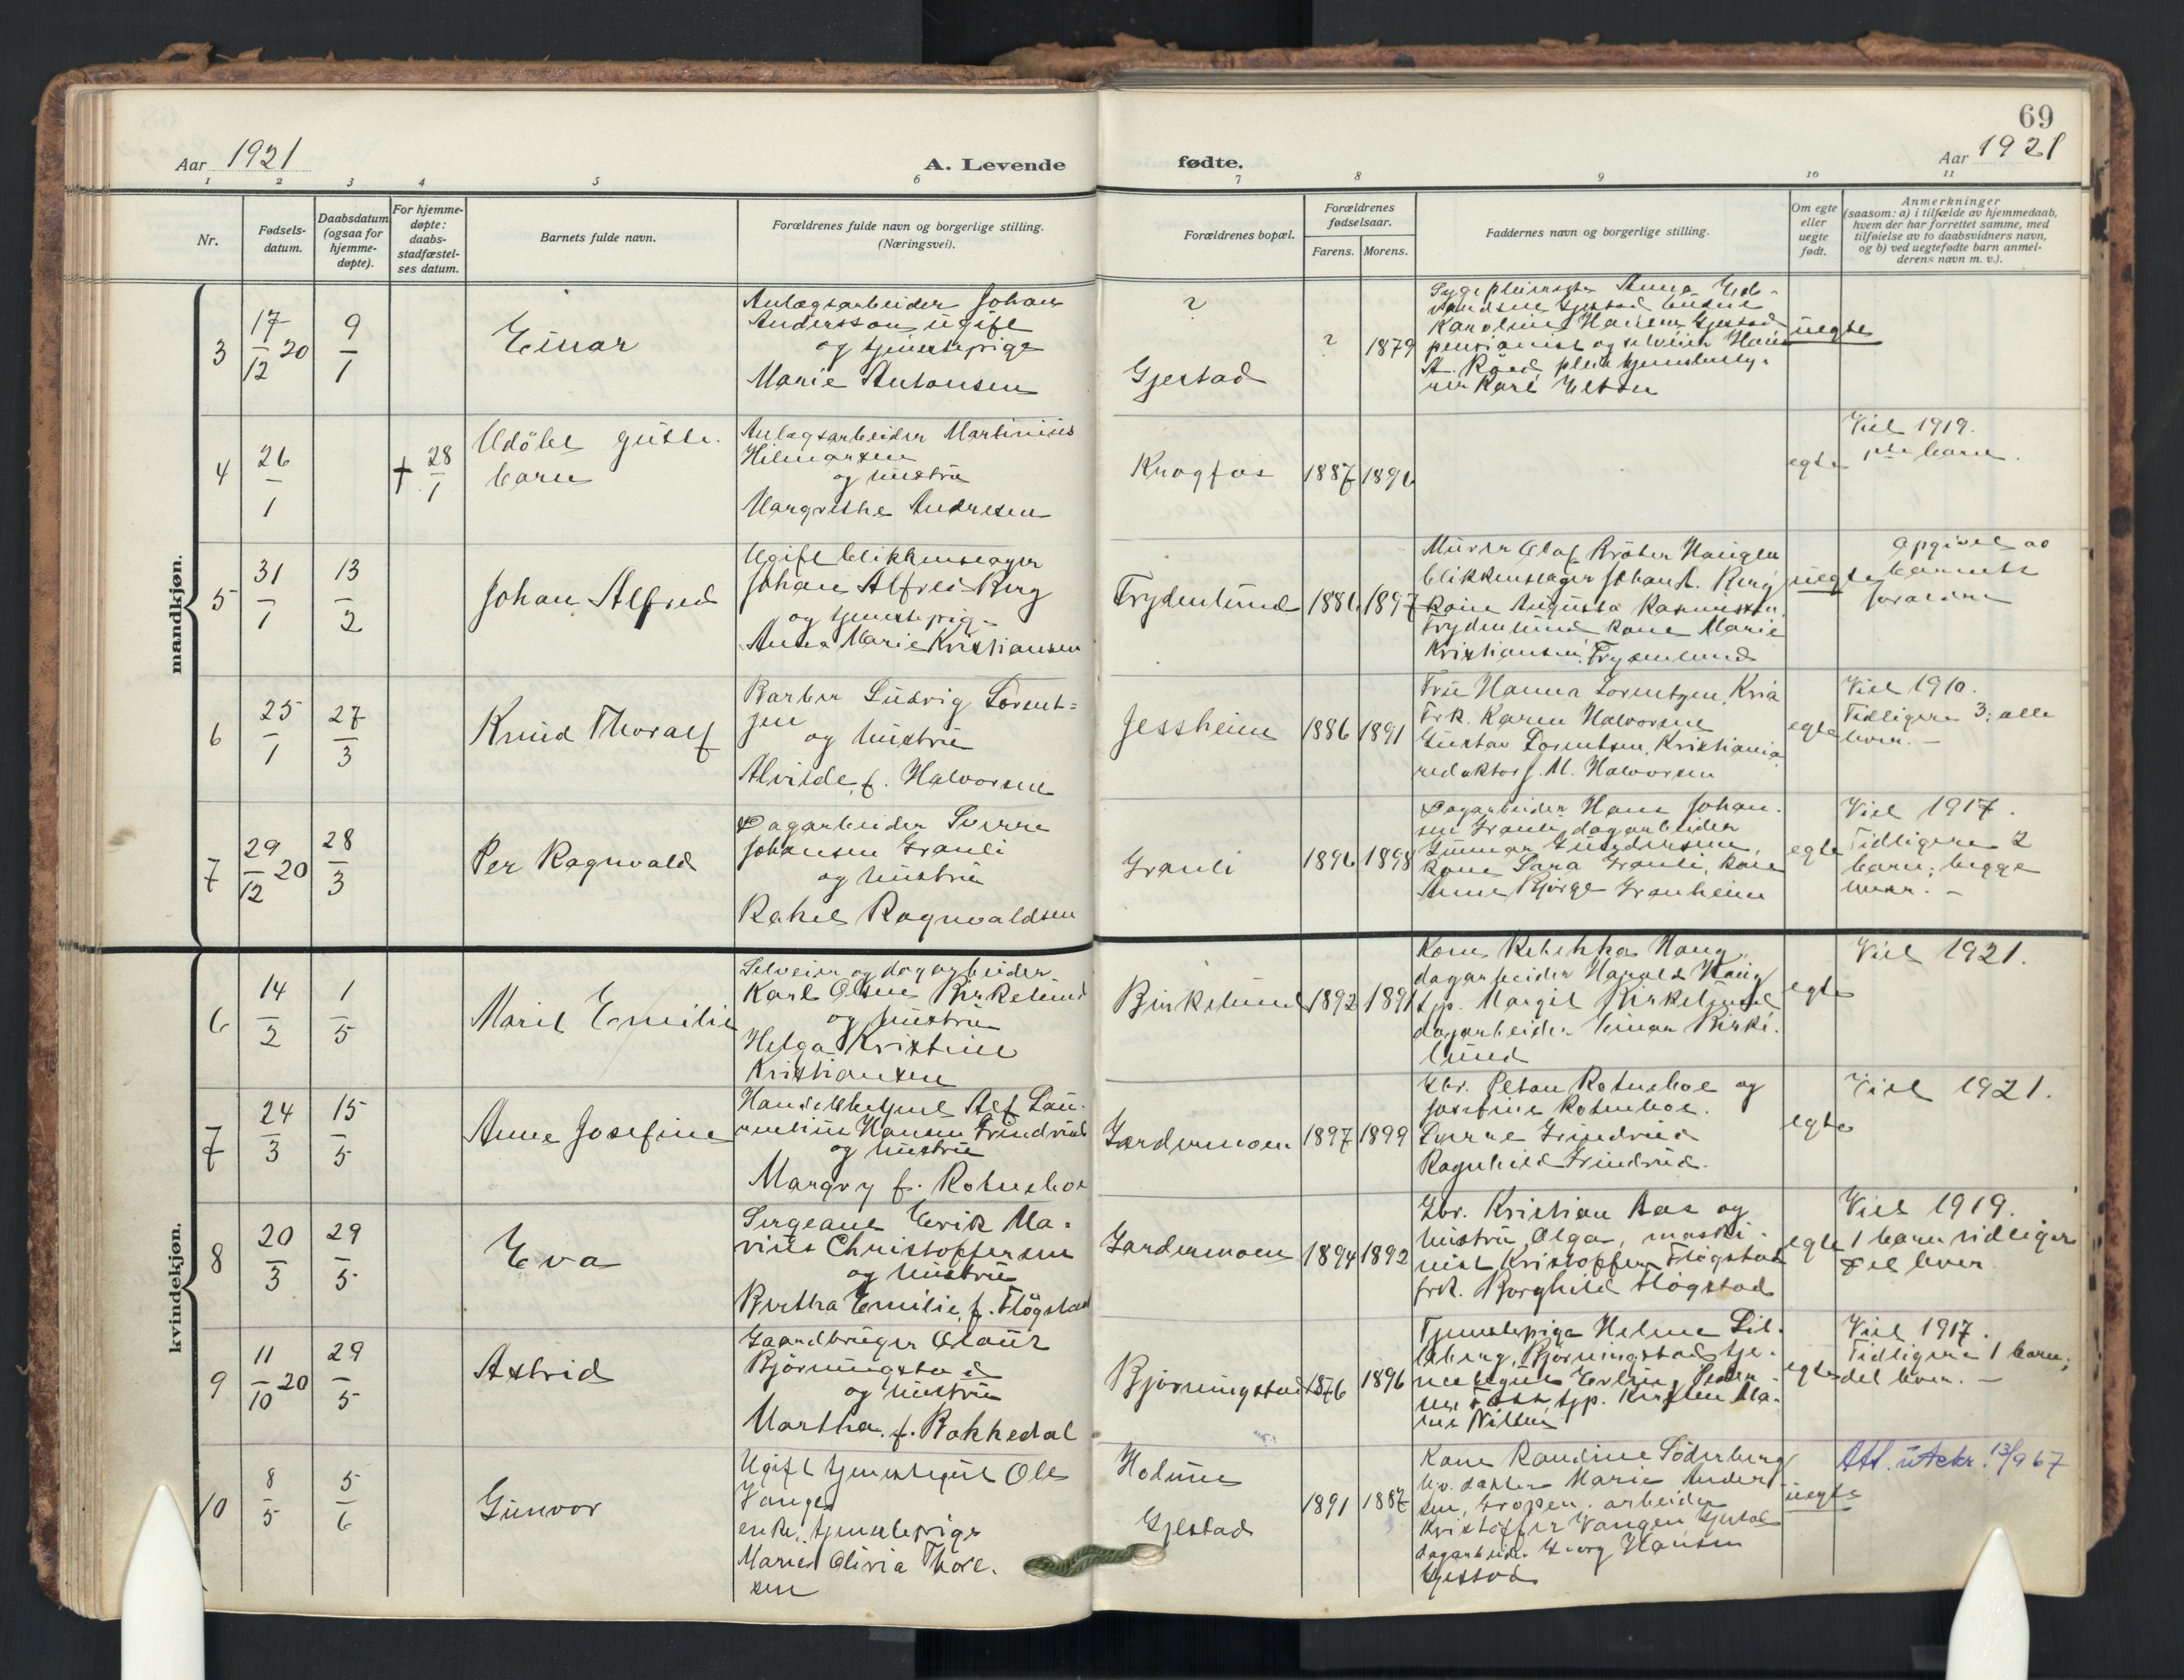 69
Aar 1921
A. Levende
fødte.
Aar 1921
1 2 3 4 5 6 7 8 9 10 11
Nr.
Fødsels-
datum.
Daabsdatum
(ogsaa for
hjemme-
døpte).
For hjemme-
døpte:
daabs-
stadfæstel-
ses datum.
Barnets fulde navn.
Forældrenes fulde navn og borgerlige stilling.
(Næringsvei).
Forældrenes bopæl.
Forældrenes
fødselsaar.
Farens. Morens.
Faddernes navn og borgerlige stilling.
Om egte
eller
uegte
født.
Anmerkninger
(saasom: a) i tilfælde av hjemmedaab,
hvem der har forrettet samme, med
tilføielse av to daabsvidners navn,
og b) ved uegtefødte barn anmel-
derens navn m. v.).
mandkjøn.
3
17/12 20
9/1
Einar
Anlægsarbeider Johan
Andersson ugift
og tjenestepige
Marie Antonsen
?
Gjestad
?
1879
Sygepleierske Anna
Karoline Hansen Gjestad
pensionist og selveier Hans
uegte
4
26/1
† 28/1
Udøbt gutte-
barn
Anlægsarbeider Martinius
Hilmarsen
og hustru
Margrethe Andresen
Knagfos
1887
1896
egte
Viet 1919.
1ste barn.
5
31/1
13/2
Johan Alfred
Ugift blikkenslager
Johan Alfred Berg
og tjenestepige
Anna Marie Kristiansen
Frydenlund
1886
1897
Murer Olaf Bråten Haugen
blikkenslager Johan A. Berg
kone Augusta Rasmussen,
Frydenlund kone Marie
Kristiansen, Frydenlund
uegte
Opgivet av
barnets
forældre
6
25/1
27/3
Knud Thoralf
Barber Ludvig Lorent-
zen
og hustru
Alvilde f. Halvorsen
Jessheim
1886
1891
Fru Hanna Lorentzen, Kria
Frk. Karen Halvorsen
Gustav Lorentsen, Kristiania
redaktør J. M. Halvorsen
egte
Viet 1910.
Tidligere 3; alle
lever. –
7
29/12 20
28/3
Per Ragnvald
Dagarbeider Sverre
Johansen Granli
og hustru
Rakel Ragnvaldsen
Granli
1896
1898
Dagarbeider Hans Johan-
sen Granli, dagarbeider
Gunnar Gundersen,
kone Sara Granli, kone
Anne Bjørge Granheim
egte
Viet 1917.
Tidligere 2
barn; begge
lever. –
kvindekjøn.
6
14/2
1/5
Marit Emilie
Selveier og dagarbeider
Karl Olsen Birkelund
og hustru
Helga Kristine
Kristiansen
Birkelund
1892
1891
Kone Rebekka Haug,
dagarbeider Harald Haug
tjp. Margit Birkelund
dagarbeider Einar Birke-
lund
egte
Viet 1921.
7
24/3
15/5
Anne Josefine
Handelsbetjent Alf Lau-
rentius Hansen Grindrud
og hustru
Margry f. Rotneboe
Gardermoen
1897
1899
Gbr. Petan Rotneboe og
Josefine Rotneboe.
Sverre Grindrud
Ragnhild Grindrud.
egte
Viet 1921.
8
20/3
29/5
Eva
Sergeant Erik Ma-
rius Christoffersen
og hustru
Bertha Emilie, f. Fløgstad
Gardermoen
1894
1892
Gbr. Kristian Aas og
hustru, Olga, maski-
nist Kristoffer Fløgstad
frk. Borghild Fløgstad
egte
Viet 1919.
1 barn tidligere
det lever.
9
11/10 20
29/5
Astrid
Gaardbruger Olaus
Bjørningstad
og hustru
Martha. f. Bakkedal
Bjørningstad
1876
1896
Tjenestepige Helene Lil-
leberg, Bjørningstad, tje-
tjp. Kirsten Ma-
egte
Viet 1917.
Tidligere 1 barn;
det lever. –
10
8/5
5/6
Gunvor
Ugift tjenestegut Ole
Vangen
enke, tjenestepige
Marie Olivia Thore-
sen
Holum
Gjestad
1891
1887
Kone Randine Söderberg
hv. datter Marie Ander
sen, Gropen, arbeider
Kristoffer Vangen Gjestad
dagarbeider Georg Hansen
Gjestad
uegte
Att. utskr. 13/9 67